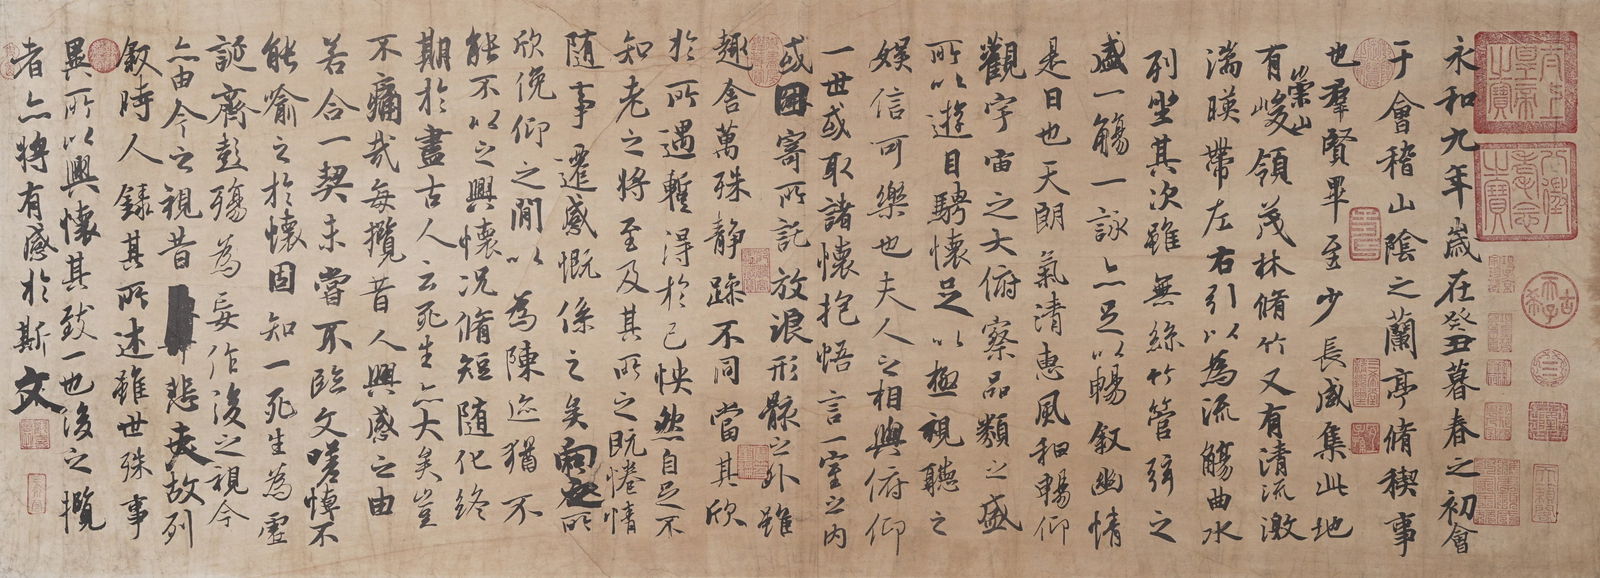 永和九年歲在癸丑暮春之初會
于會稽山陰之蘭亭脩稧事
也羣賢畢至少長咸集此地
有崇山峻領茂林脩竹又有清流激
湍暎帶左右引以為流觴曲水
列坐其次雖無絲竹管弦之
盛一觴一詠亦足以暢敘幽情
是日也天朗氣清惠風和暢仰
觀宇宙之大俯察品類之盛
所以遊目騁懷足以極視聽之
娛信可樂也夫人之相與俯仰
一世或取諸懷抱悟言一室之內
或因寄所託放浪形骸之外雖
趣舍萬殊靜躁不同當其欣
於所遇暫得於己怏然自足不
知老之將至及其所之既惓情
隨事遷感慨係之矣向之所
欣俛仰之閒以為陳迹猶不
能不以之興懷況脩短隨化終
期於盡古人云死生亦大矣豈
不痛哉每攬昔人興感之由
若合一契未嘗不臨文嗟悼不
能喻之於懷固知一死生為虛
誕齊彭殤為妄作後之視今
亦由今之視昔悲夫故列
敘時人錄其所述雖世殊事
異所以興懷其致一也後之攬
者亦將有感於斯文
太上皇帝之寶
八徵耄念之寶
古稀天子